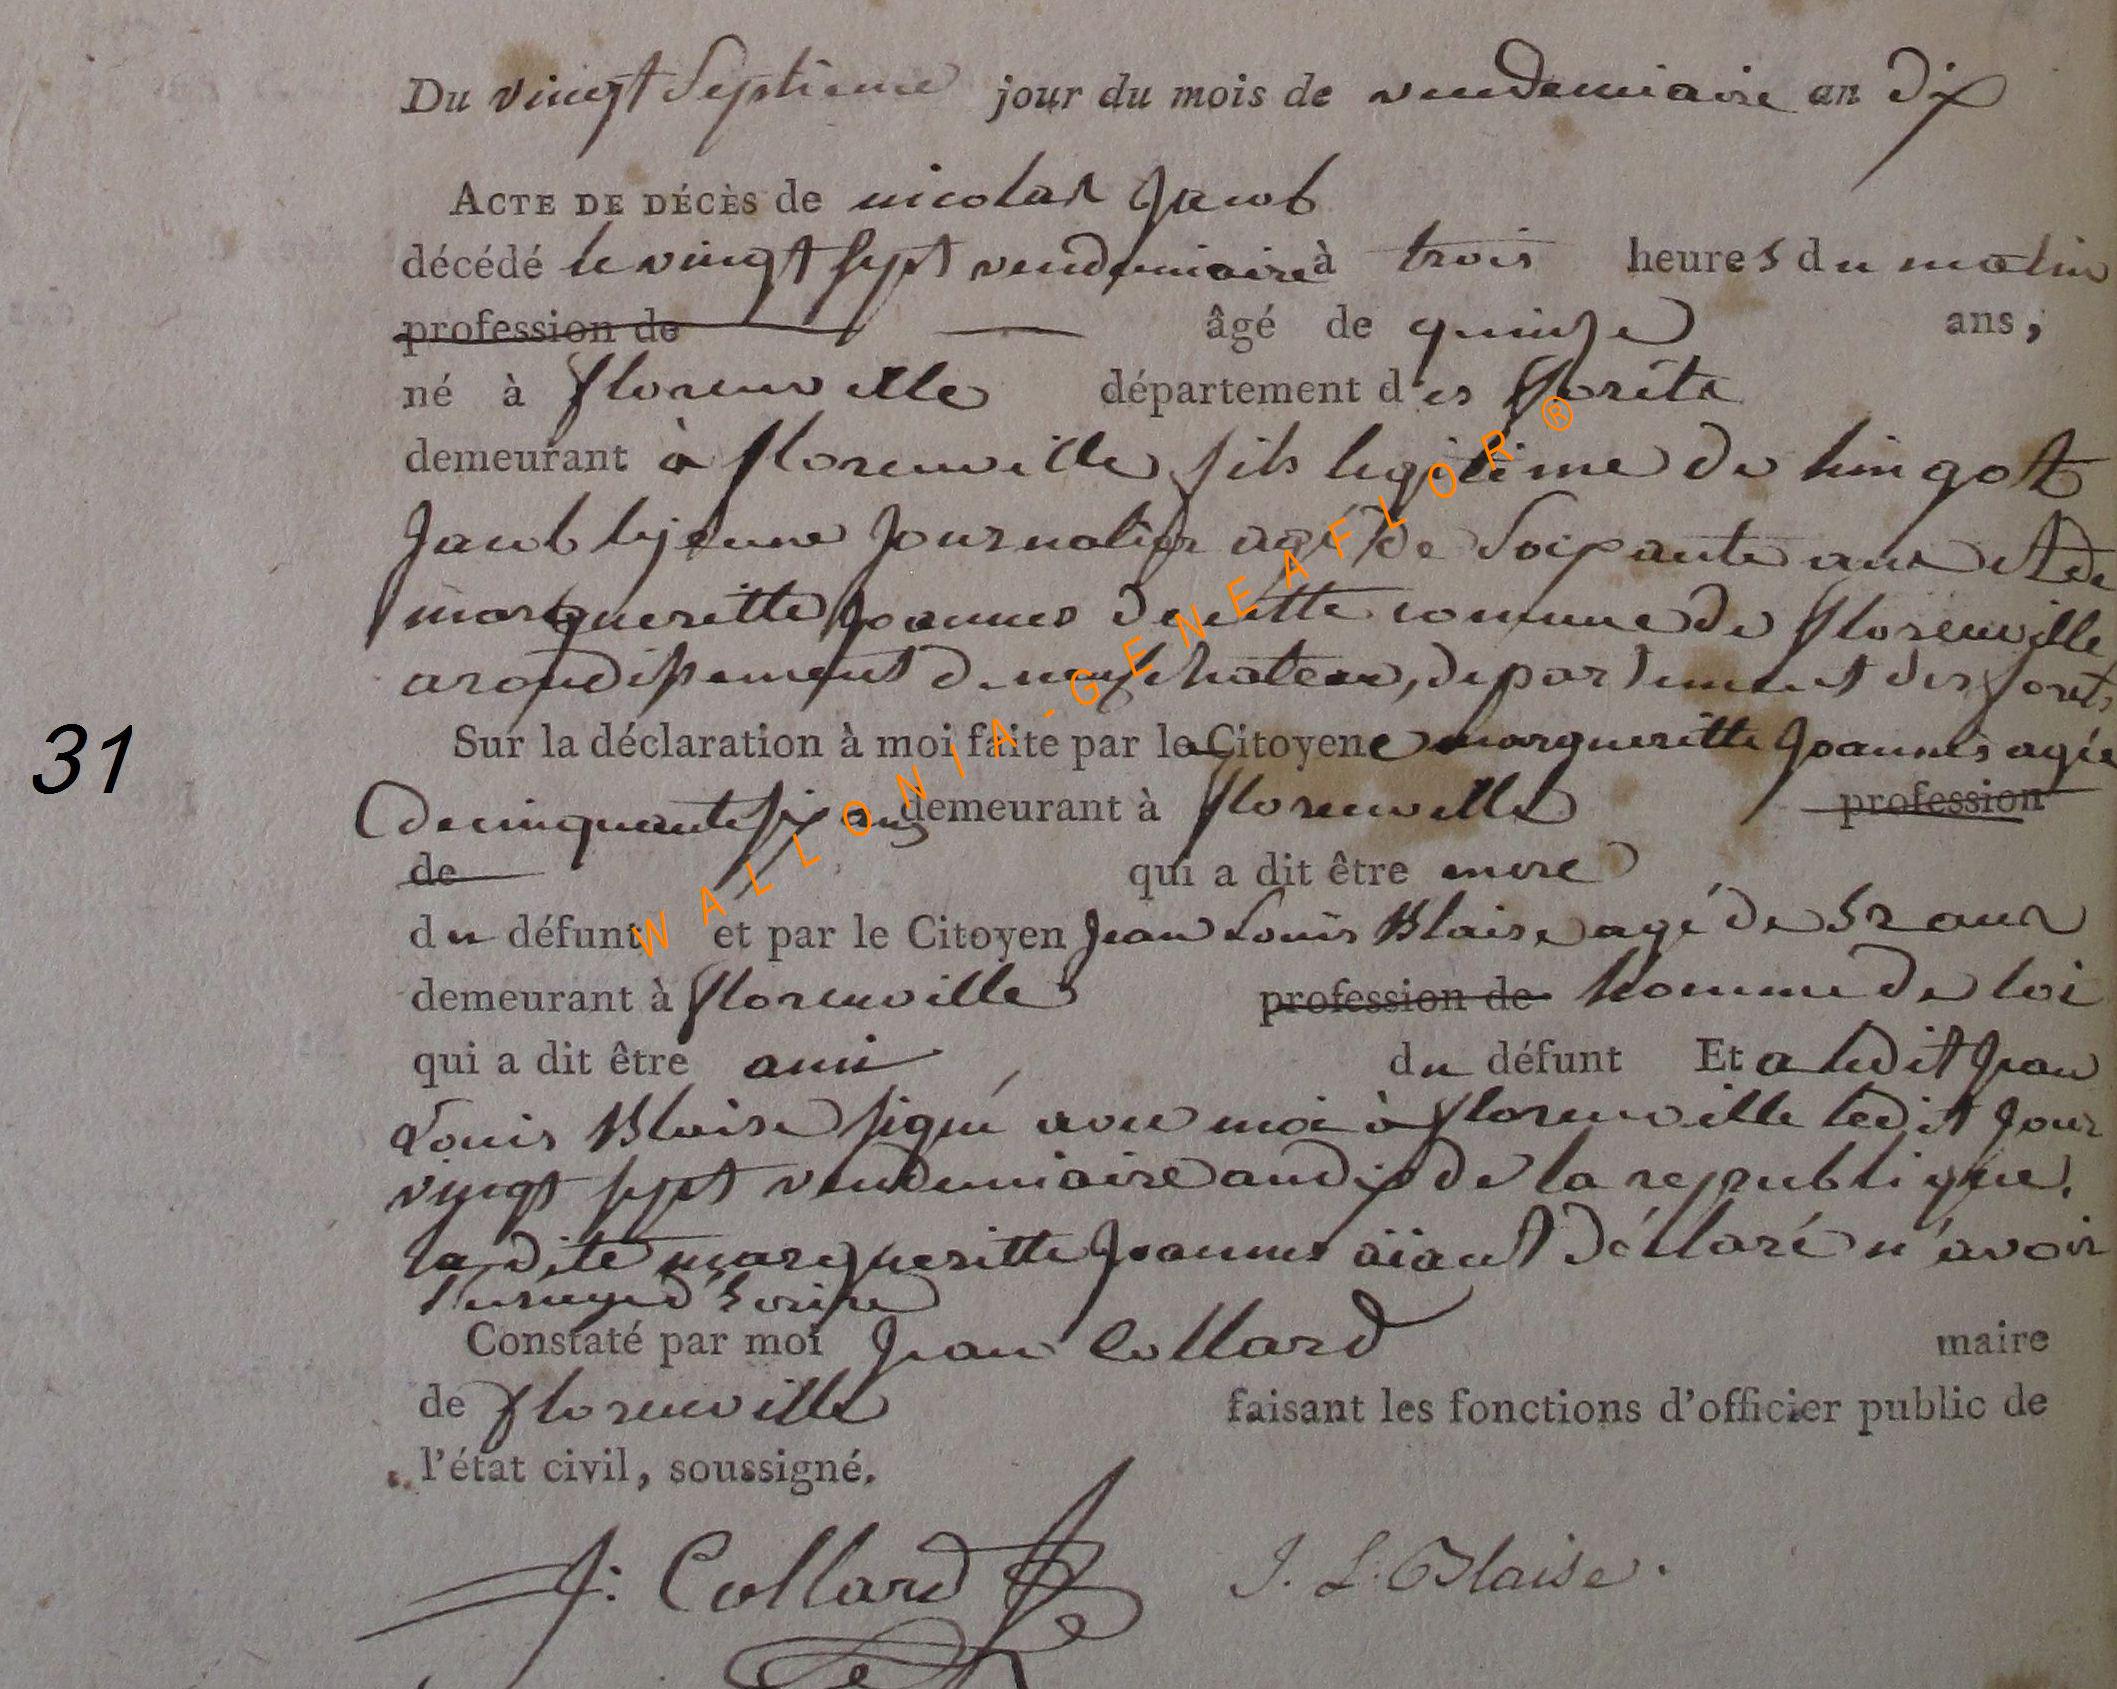 Du vingt Septieme jour du mois de vendemiaire an dix
ACTE DE DÉCÈS de nicolas Jacob
décédé le vingt sept vendemiaire à trois heures du matin
profession de âgé de quinze ans,
né à florenville département des forêts
demeurant à florenville fils legitime de hingot
Jacob lejeune Journalier agé de Soixante ans et de
margueritte Joannes de cette commune de florenville
arondissement de neufchateau, departement des forets
31
Sur la déclaration à moi faite par la Citoyene margueritte Joannes agée
de cinquante six ans demeurant à florenville profession
de qui a dit être mere
du défunt et par le Citoyen Jean Louis Blaise agé de 52 ans
demeurant à florenville profession de homme de loi
qui a dit être ami du défunt Et a ledit Jean
Louis Blaise signé avec moi à florenville ledit Jour
vingt sept vendemiaire an dix de la republique.
la dite margueritte Joannes aïant déclaré n'avoir
l'usage d'Ecrire
Constaté par moi Jean Collard maire
de florenville faisant les fonctions d'officier public de
l'état civil, soussigné.
J: Collard J. L. Blaise.
WALLONIA-GENEAFLOR ®